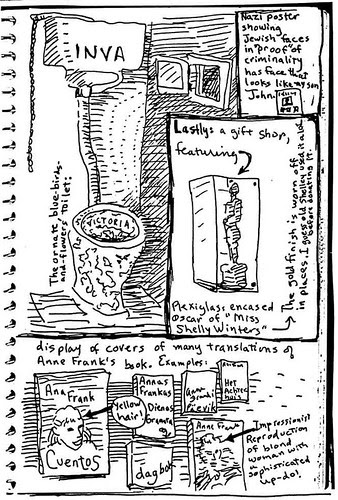 INVA
VICTORIA
The ornate blue-birds-
and-flowers toilet:
Nazi poster
showing
Jewish faces
in "proof" of
criminality
has face that
looks like my son
John.
Lastly: a gift shop,
featuring
Plexiglas-encased
Oscar of "Miss
Shelly Winters"
The gold finish is worn off
in places. I guess old Shelley used it a lot
before donating it.
display of covers of many translations of
Anne Frank's book. Examples:
Ana
Frank
Cuentos
Yellow
hair!
Annas
Frankas
Dienas
dagbok
Het
Anne Frank
Impressionist
Reproduction
of blond
woman with
sophisticated
up-do!